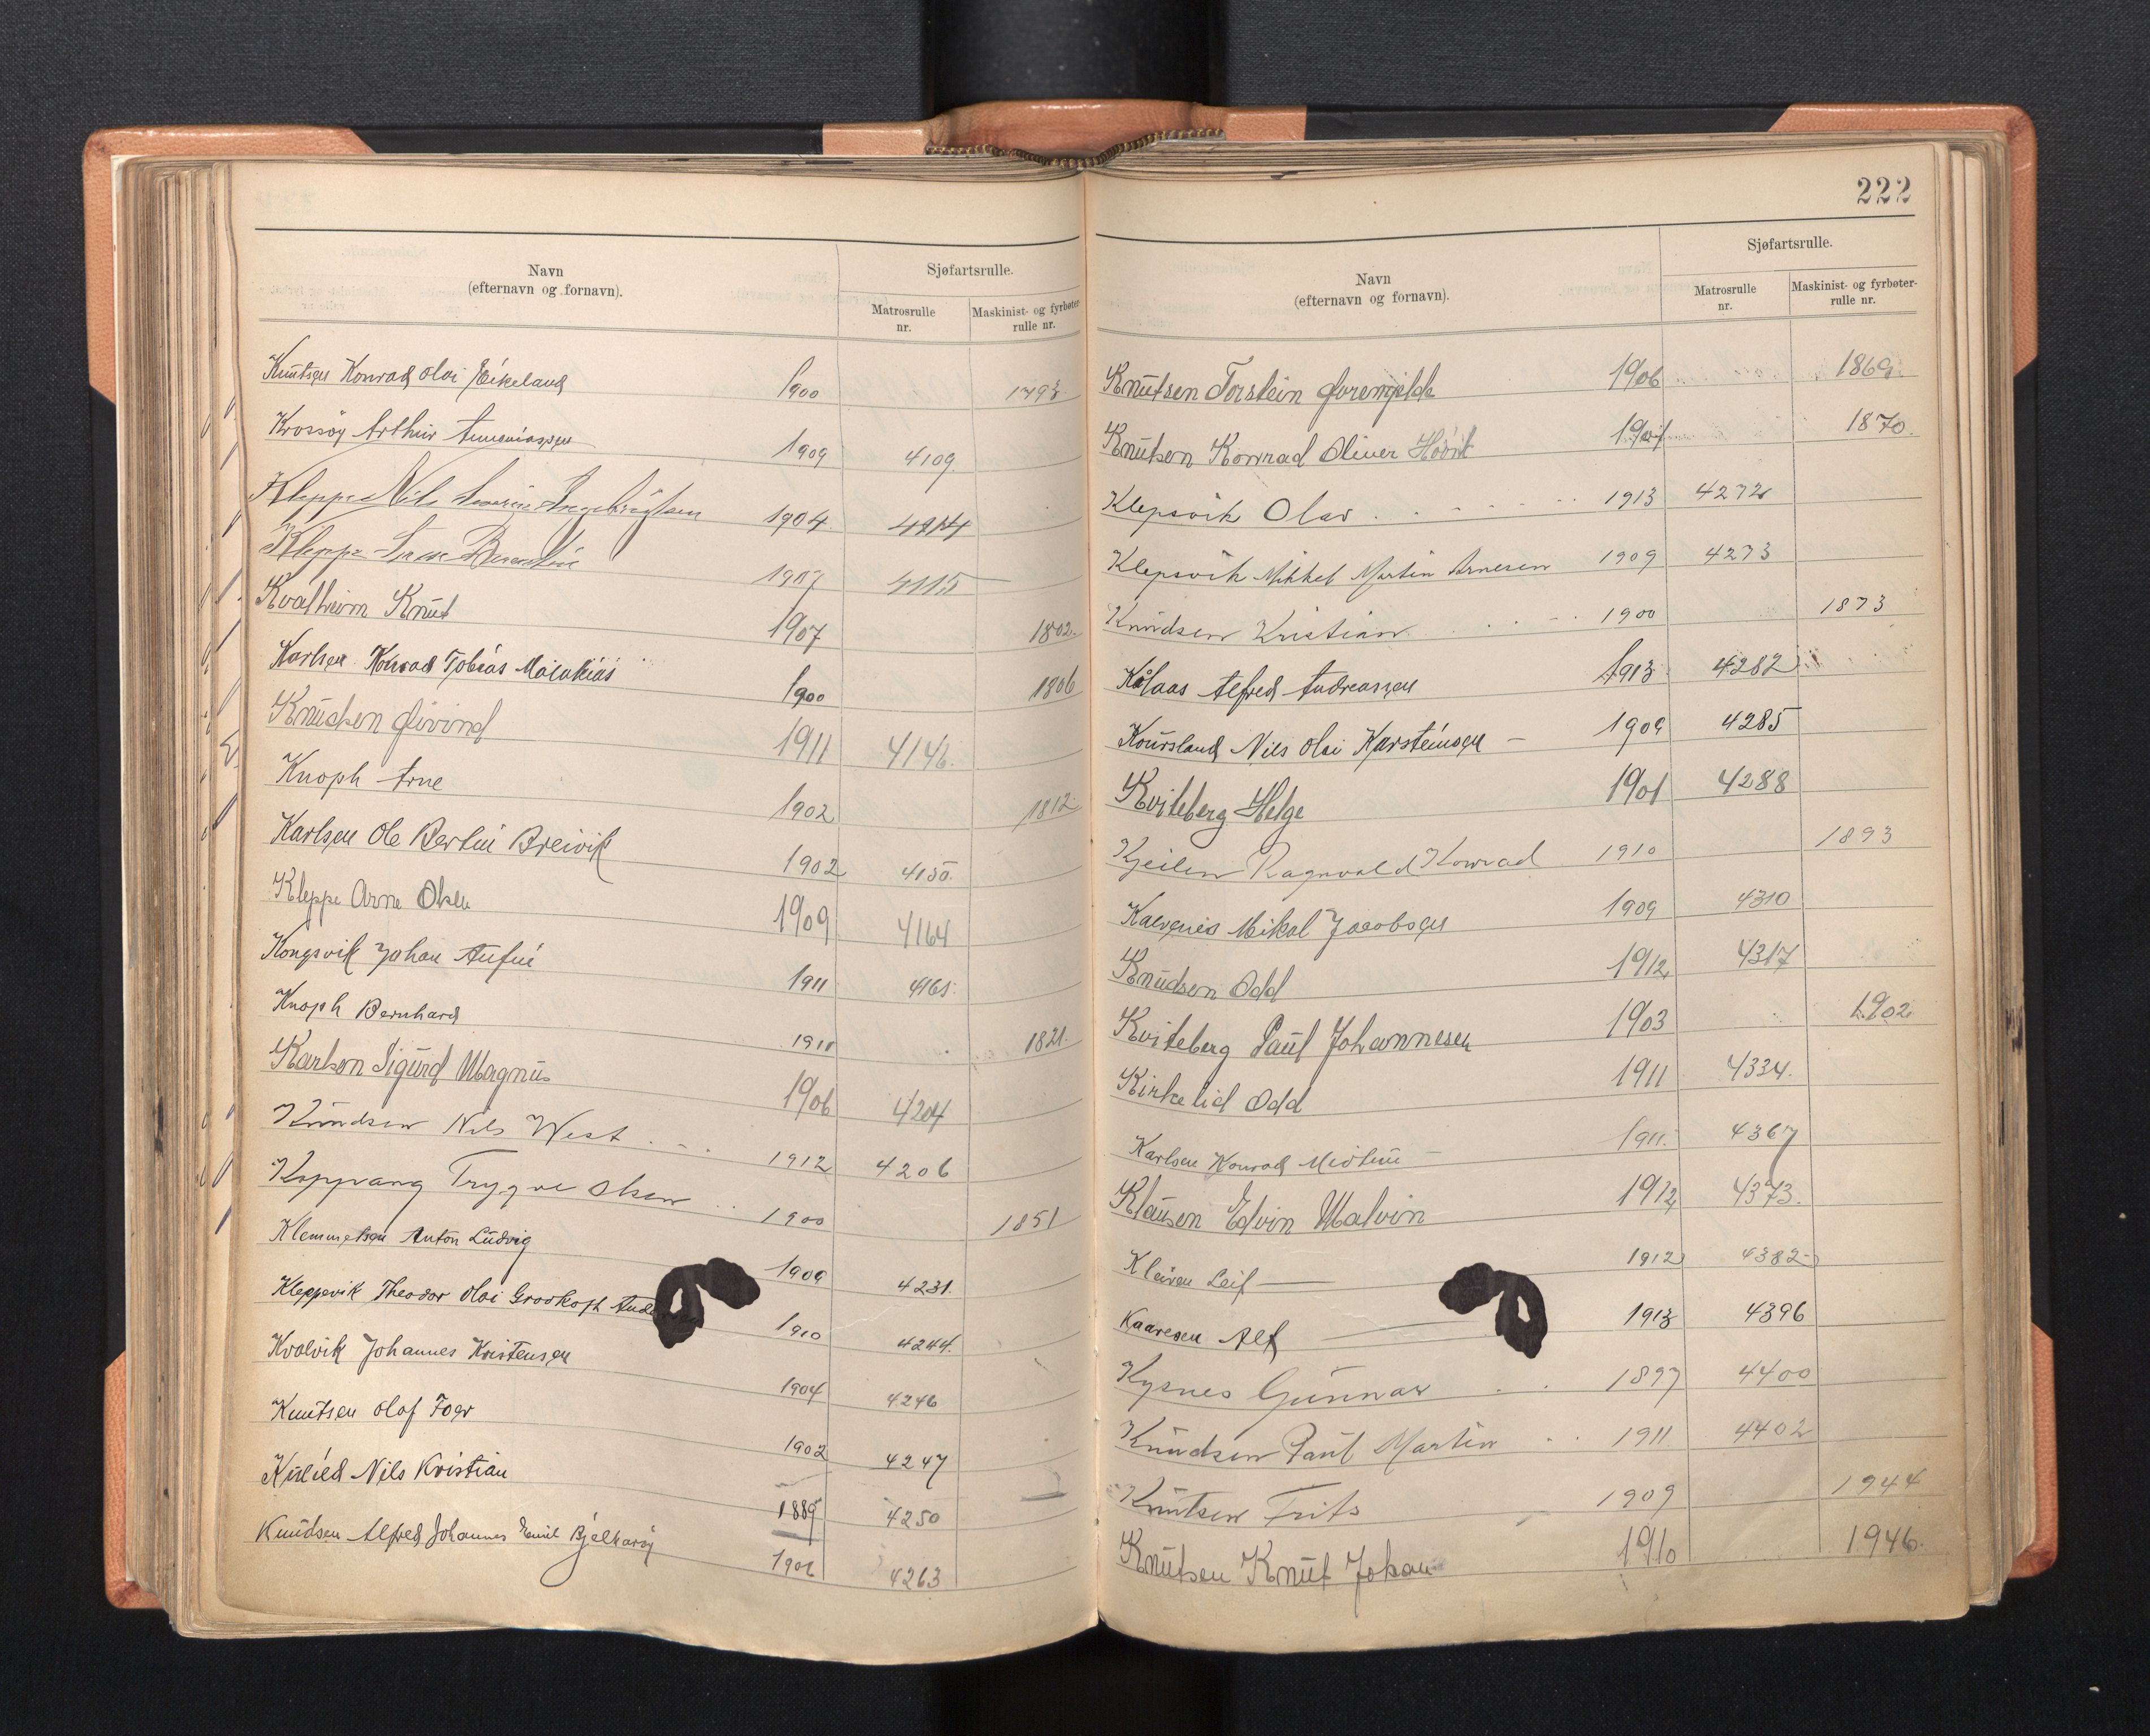 Navn
(efternavn og fornavn).
Sjøfartsrulle.
Matrosrulle nr.
Maskinist- og fyrbøter-rulle nr.
Knutsen Konrad Olai Eikeland 1900 1793.
Krossøy Arthur 1909 4109
Kleppe Nils Severin Ingebrigtsen 1904 4114
Kleppe 1907 4115
Kvalheim Knut 1907 1802.
Karlsen Konrad Tobias Malakias 1900 1806
Knudsen Øivind 1911 4146.
Knoph Arne 1902 1812.
Karlsen Ole Bertin Breivik 1902 4150.
Kleppe Arne Olsen 1909 4164
Kongsvik Johan Anfin 1911 4165.
Knoph Bernhard 1911 1821.
Karlsen Sigurd Magnus 1906 4204
Knudsen Nils West 1912 4206
Koppvang Trygve Olsen 1900 1851
Klemmetsen Anton Ludvig 1909 4231.
Kleppevik Theodor Olai Grookoph 1910 4244.
Kvalvik Johannes Kristensen 1904 4246
Knutsen Olaf Foer 1902 4247
Nils Kristian 1889 4250
Knudsen Alfred Johannes Emil Bjelkarøy 1906 4263
222
Navn
(efternavn og fornavn).
Sjøfartsrulle.
Matrosrulle nr.
Maskinist- og fyrbøter-rulle nr.
Knutsen Torstein Øvremjelde 1906 1869.
Knutsen Konrad Oliver 1870.
Klepsvik Olav 1913 4272
Klepsvik Mikkel Martin Arnesen 1909 4273
Knudsen Kristian 1900 1873
Kålaas Alfred Andreassen 1913 4282
Koursland Nils Olai Karsteinsen 1909 4285
Kviteberg Helge 1901 4288
Kjeilen Ragnvald Konrad 1910 1893
Kalvenes Mikal Jacobsen 1909 4310
Knudsen Odd 1912 4317
Kviteberg Paul Johannesen 1903 1902
Kirkelid Odd 1911 4334.
Karlsen Konrad Midtun 1911. 4367
Klausen Edvin Malvin 1912 4373.
Kleiven Leif 1912 4382
Kaaresen Alf 1913 4396
Kysnes Gunnar 1897 4400
Knudsen Paul Martin 1911 4402
Knutsen Frits 1909 1944
Knutsen Knut Johan 1910 1946.